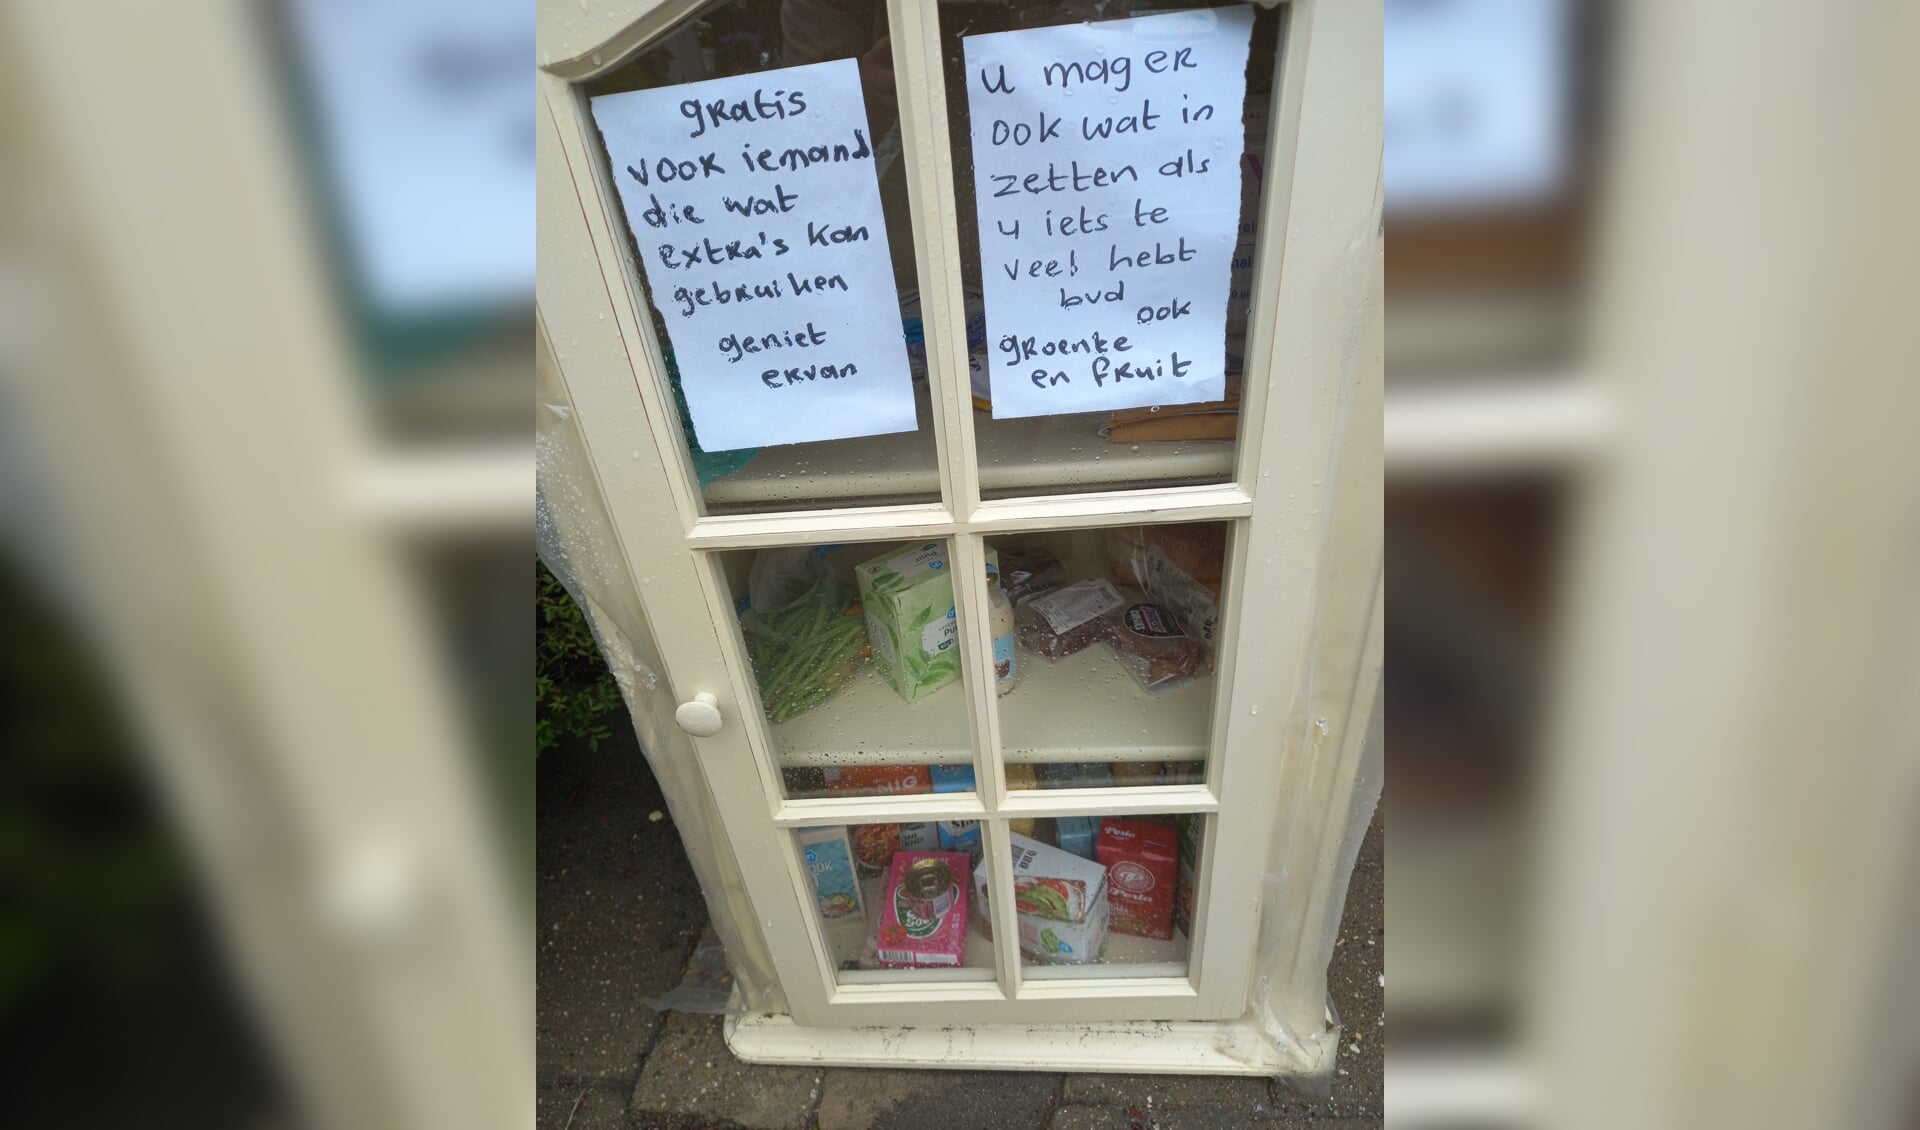 gratis
voor iemand
die wat
extra's kan
gebruiken
geniet
ervan
u mag er
ook wat in
zetten als
u iets te
veel hebt
bvd
ook
groente
en fruit
Puur
HONIG
Perla
Perla